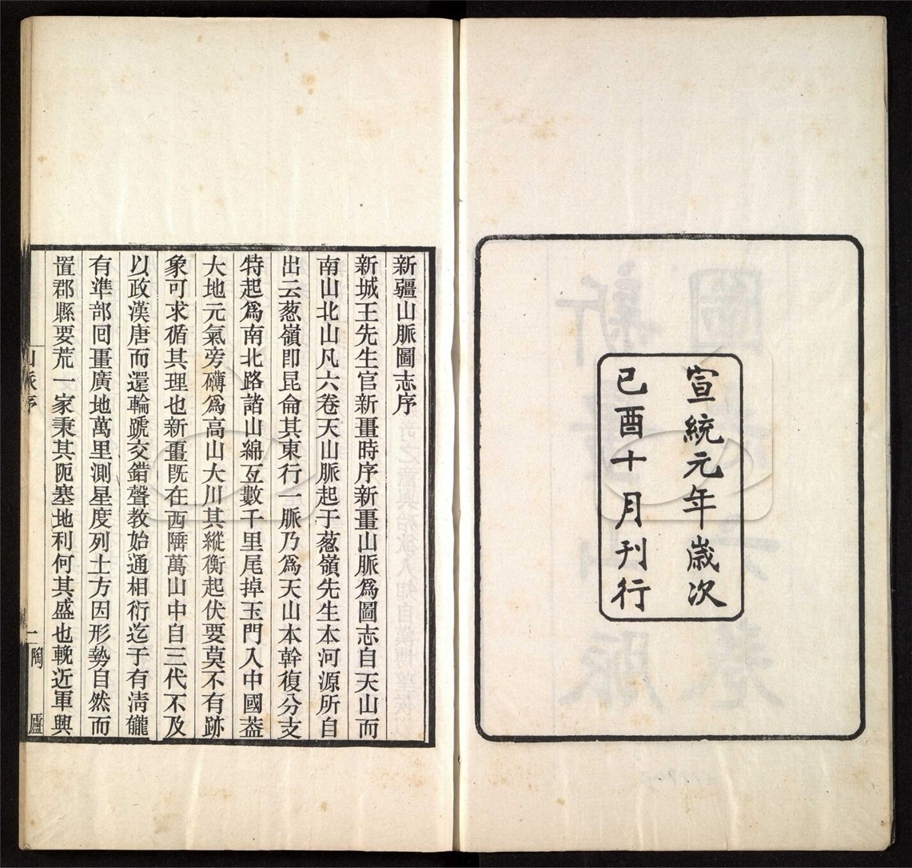 宣統元年歲次
己酉十月刊行
新疆山脈圖志序
新城王先生官新畺時序新畺山脈爲圖志自天山而
南山北山凡六卷天山脈起于葱嶺先生本河源所自
出云葱嶺即昆侖其東行一脈乃爲天山本幹復分支
特起爲南北路諸山綿亙數千里尾掉玉門入中國葢
大地元氣旁礴爲高山大川其縱衡起伏要莫不有跡
象可求循其理也新畺旣在西陲萬山中自三代不及
以政漢唐而還輪蹏交錯聲教始通相衍迄于有清
有準部回畺廣地萬里測星度列土方因形勢自然而
置郡縣要荒一家秉其阨塞地利何其盛也輓近軍興
山脈序
陶
廬